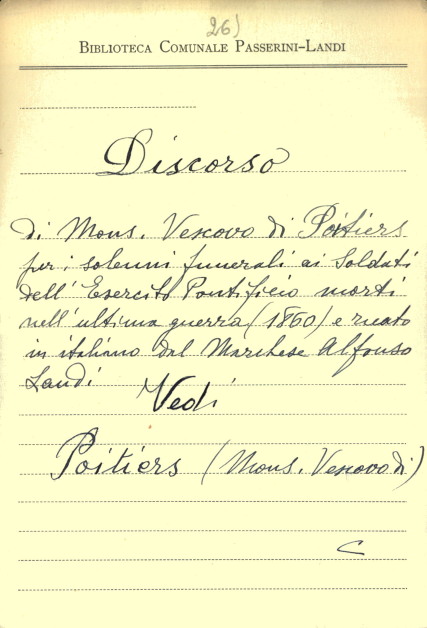 26)
BIBLIOTECA COMUNALE PASSERINI-LANDI
Discorso
di Mons. Vescovo di Poitiers
per i solenni funerali ai Soldati
dell'Esercito Pontificio morti
nell'ultima guerra (1860) e recato
in italiano dal Marchese Alfonso
Landi
Vedi
Poitiers (Mons. Vescovo di)
C